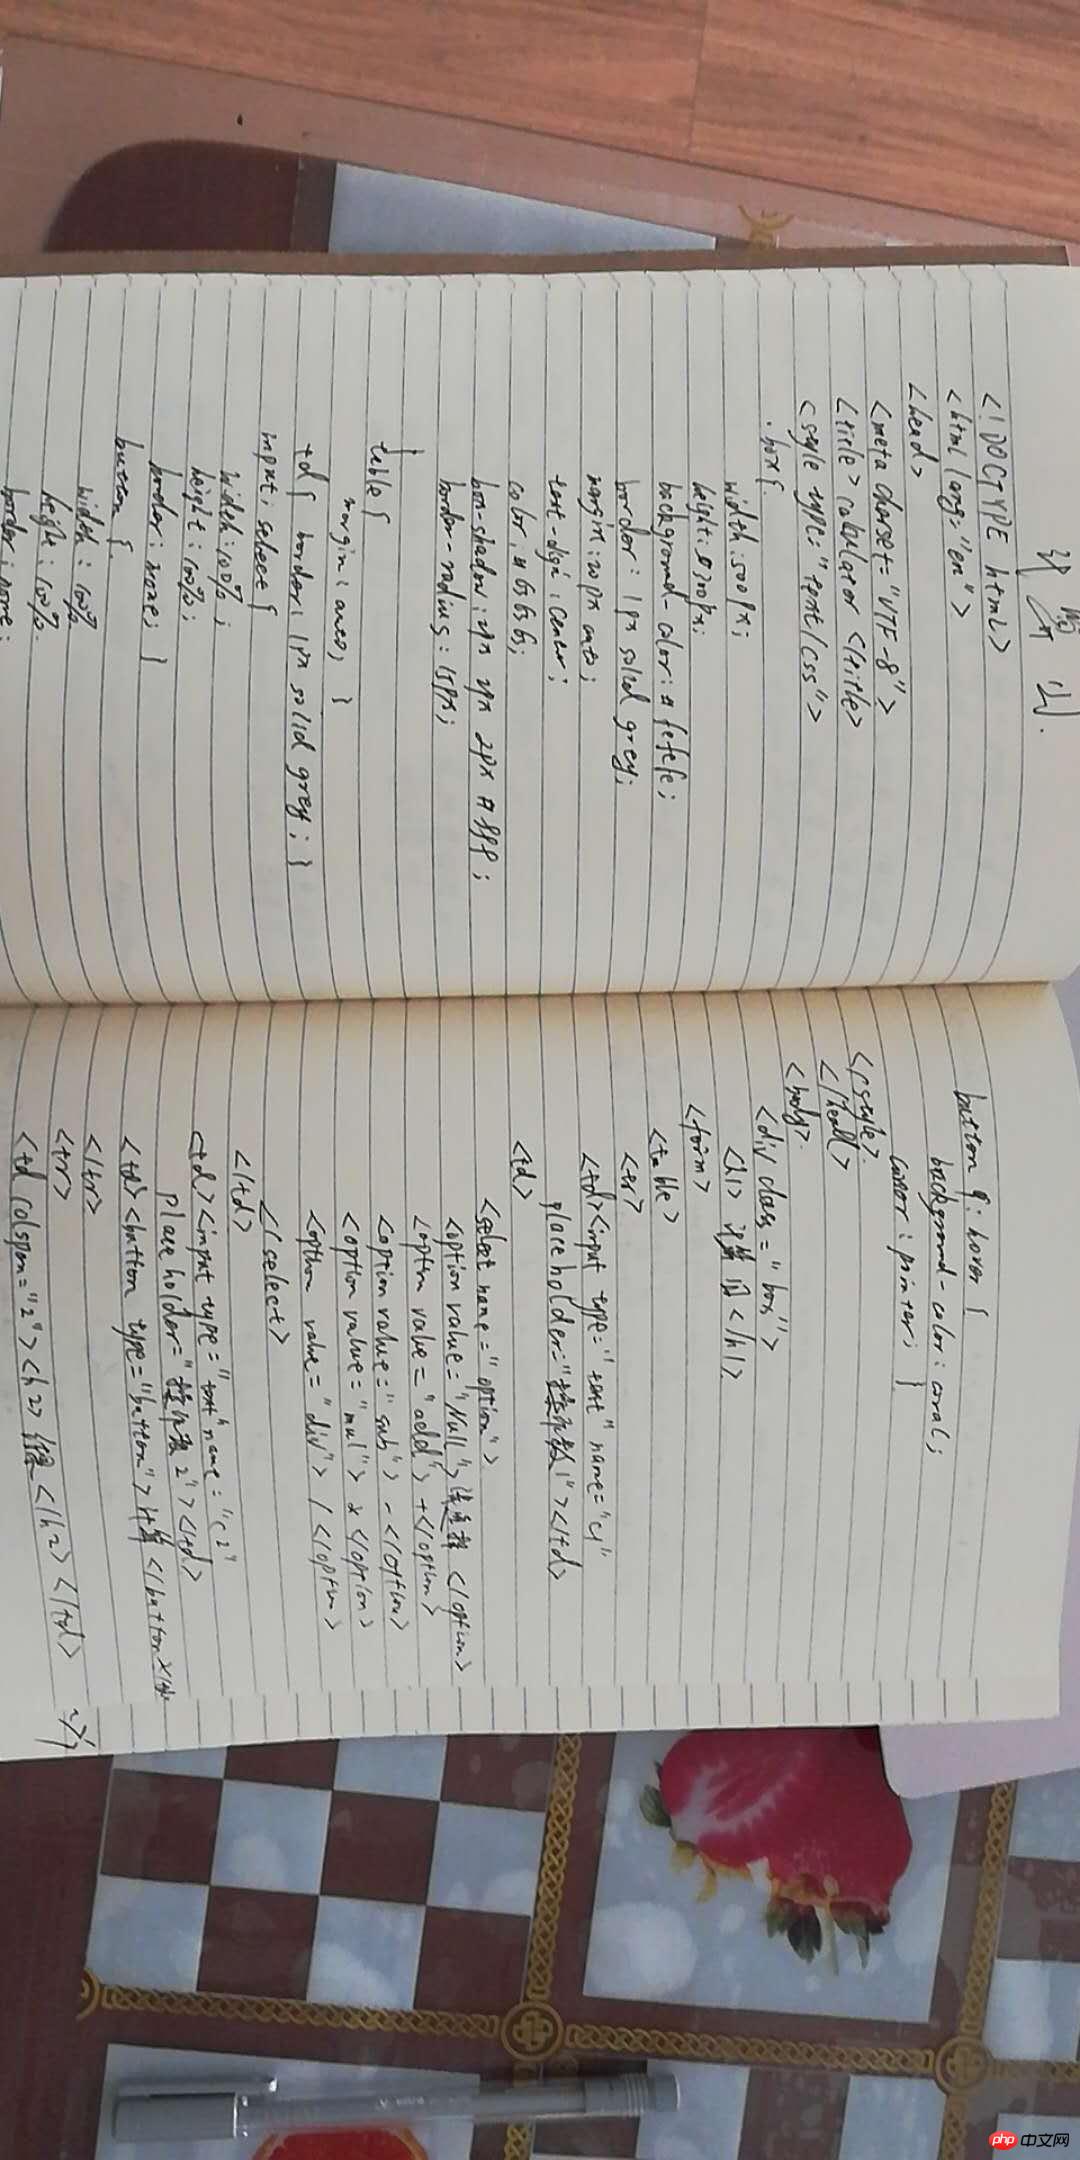 <!DOCTYPE html>
<html lang="en">
<head>
<meta charset="UTF-8">
<title>calculator</title>
<style type="text/css">
.box{
width:500px;
height:230px;
background-color:#fefefe;
border:1px solid grey;
margin:20px auto;
text-align:center;
color:#636363;
box-shadow:2px 2px 2px #999;
border-radius:15px;
}
table{
margin:auto; }
td{ border:1px solid grey; }
input select {
width:100%;
height:100%;
border:none; }
button {
width:100%
height:100%.
border:none:
button :hover {
background-color:coral;
cursor:pointer; }
</style>
</head>
<body>
<div class="box">
<h1>计算器</h1>
<form>
<table>
<tr>
<td><input type="text" name="
placeholder="操作数1"></td>
<td>
<select name="option">
<option value="Null">请选择</option>
<option value="add">+</option>
<option value="sub">-</option>
<option value="mul">x</option>
<option value="div">/</option>
</select>
</td>
<td><input type="text" name="
placeholder="操作数2"></td>
<td><button type="button">计算</button>
</tr>
<tr>
<td colspan="2"><h2>结果</h2></td>
php 中文网